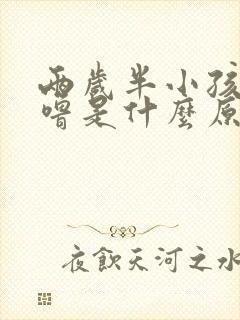 兩歲半小孩
嘈是什麼原
夜飲天河之水